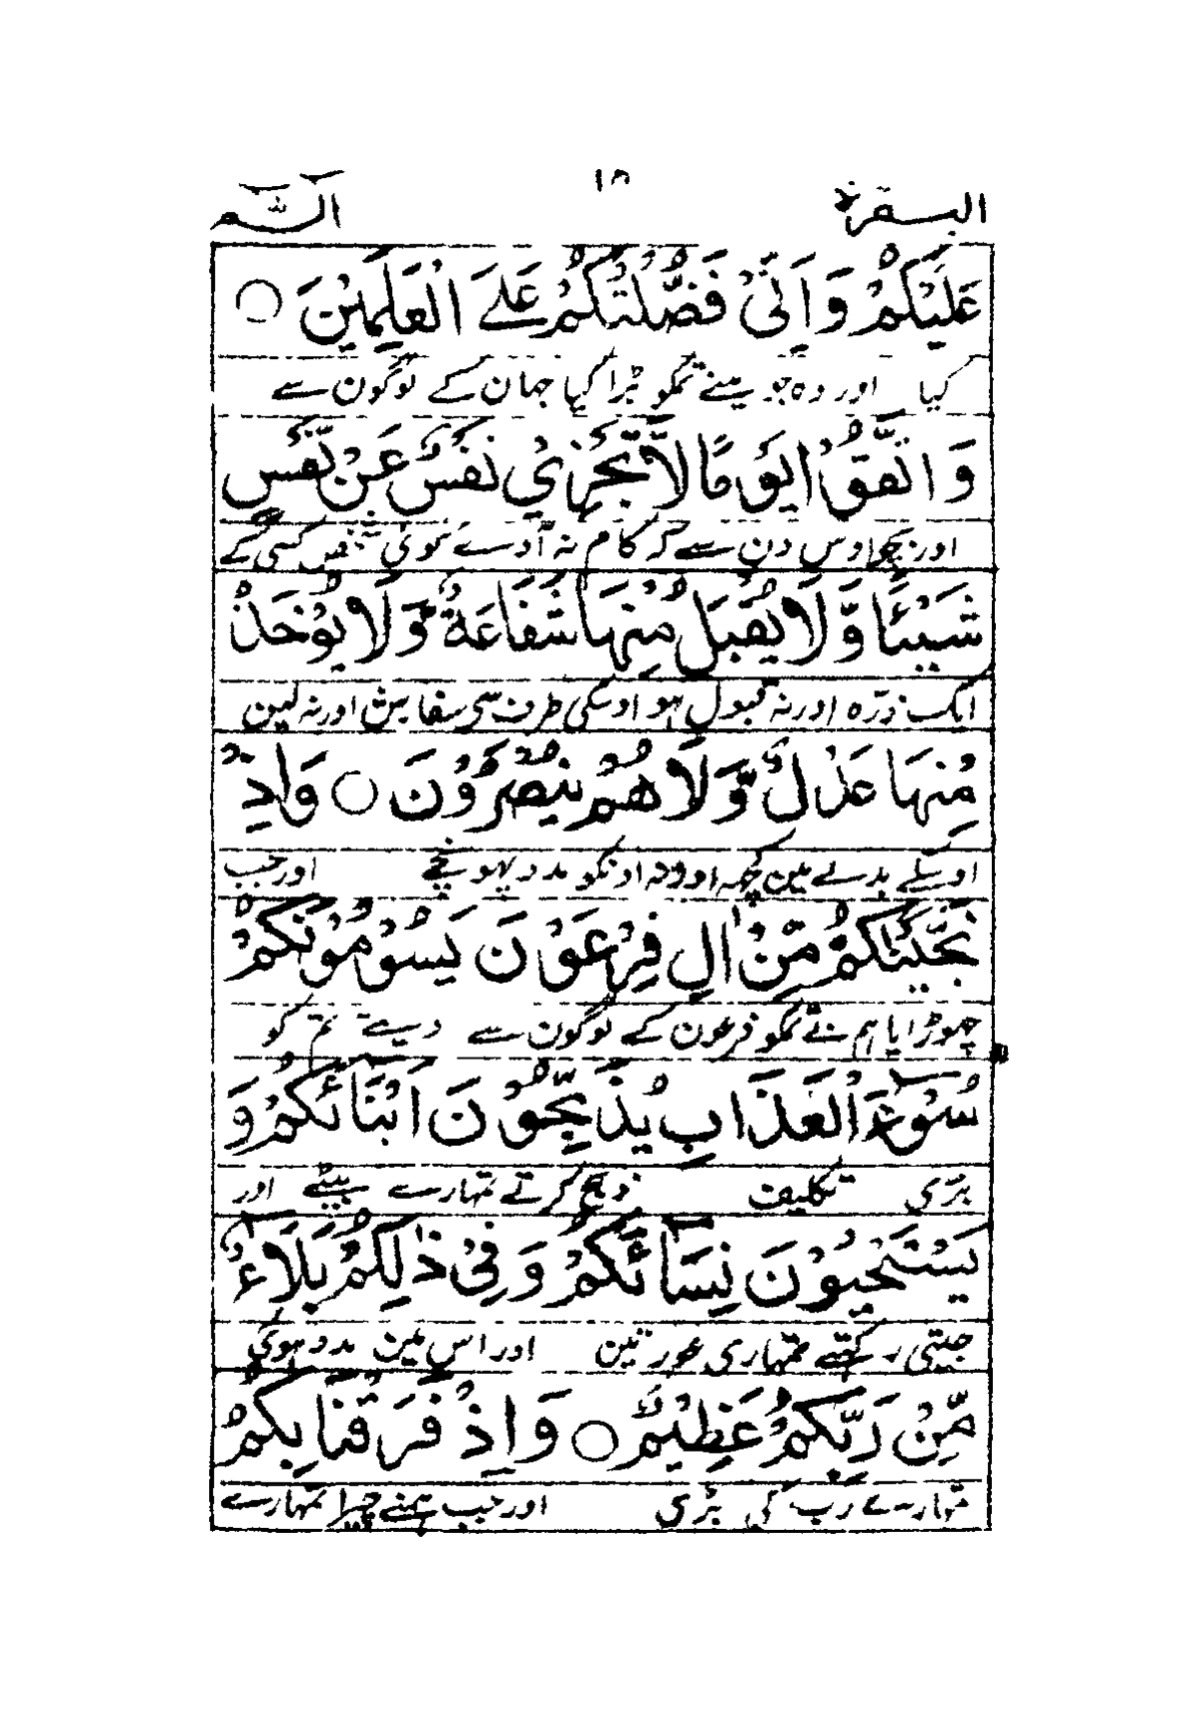 البقرة ١٥ الٓمّٓ
عَلَيْكُمْ وَاَنِّيْ فَضَّلْتُكُمْ عَلَى الْعٰلَمِيْنَ ○
کیا اور وہ جو مینے تمکو بڑا کیا جہان کے لوگون سے
وَاتَّقُوْا يَوْمًا لَّا تَجْزِيْ نَفْسٌ عَنْ نَّفْسٍ
اور بچو اوس دن سے کہ کام نہ آوے کوئی شخص کسی کے
شَيْـًٔا وَّلَا يُقْبَلُ مِنْهَا شَفَاعَةٌ وَّلَا يُؤْخَذُ
ایک ذرّہ اور نہ قبول ہو اوسکی طرف سے سفارش اور نہ لین
مِنْهَا عَدْلٌ وَّلَا هُمْ يُنْصَرُوْنَ ○ وَاِذْ
اوسکے بدلے مین کچھ اور نہ اونکو مدد پہونچے اور جب
نَجَّيْنٰكُمْ مِّنْ اٰلِ فِرْعَوْنَ يَسُوْمُوْنَكُمْ
چھوڑایا ہم نے تمکو فرعون کے لوگون سے دیتے تم کو
سُوْٓءَ الْعَذَابِ يُذَبِّحُوْنَ اَبْنَآئَكُمْ وَ
بڑی تکلیف ذبح کرتے تمہارے بیٹے اور
يَسْتَحْيُوْنَ نِسَآئَكُمْ وَفِيْ ذٰلِكُمْ بَلَآءٌ
جیتی رکھتے تمہاری عورتین اور اس مین مدد ہوئی
مِّنْ رَّبِّكُمْ عَظِيْمٌ ○ وَاِذْ فَرَقْنَا بِكُمُ
تمہارے رب کی بڑی اور جب ہمنے چیرا تمہارے